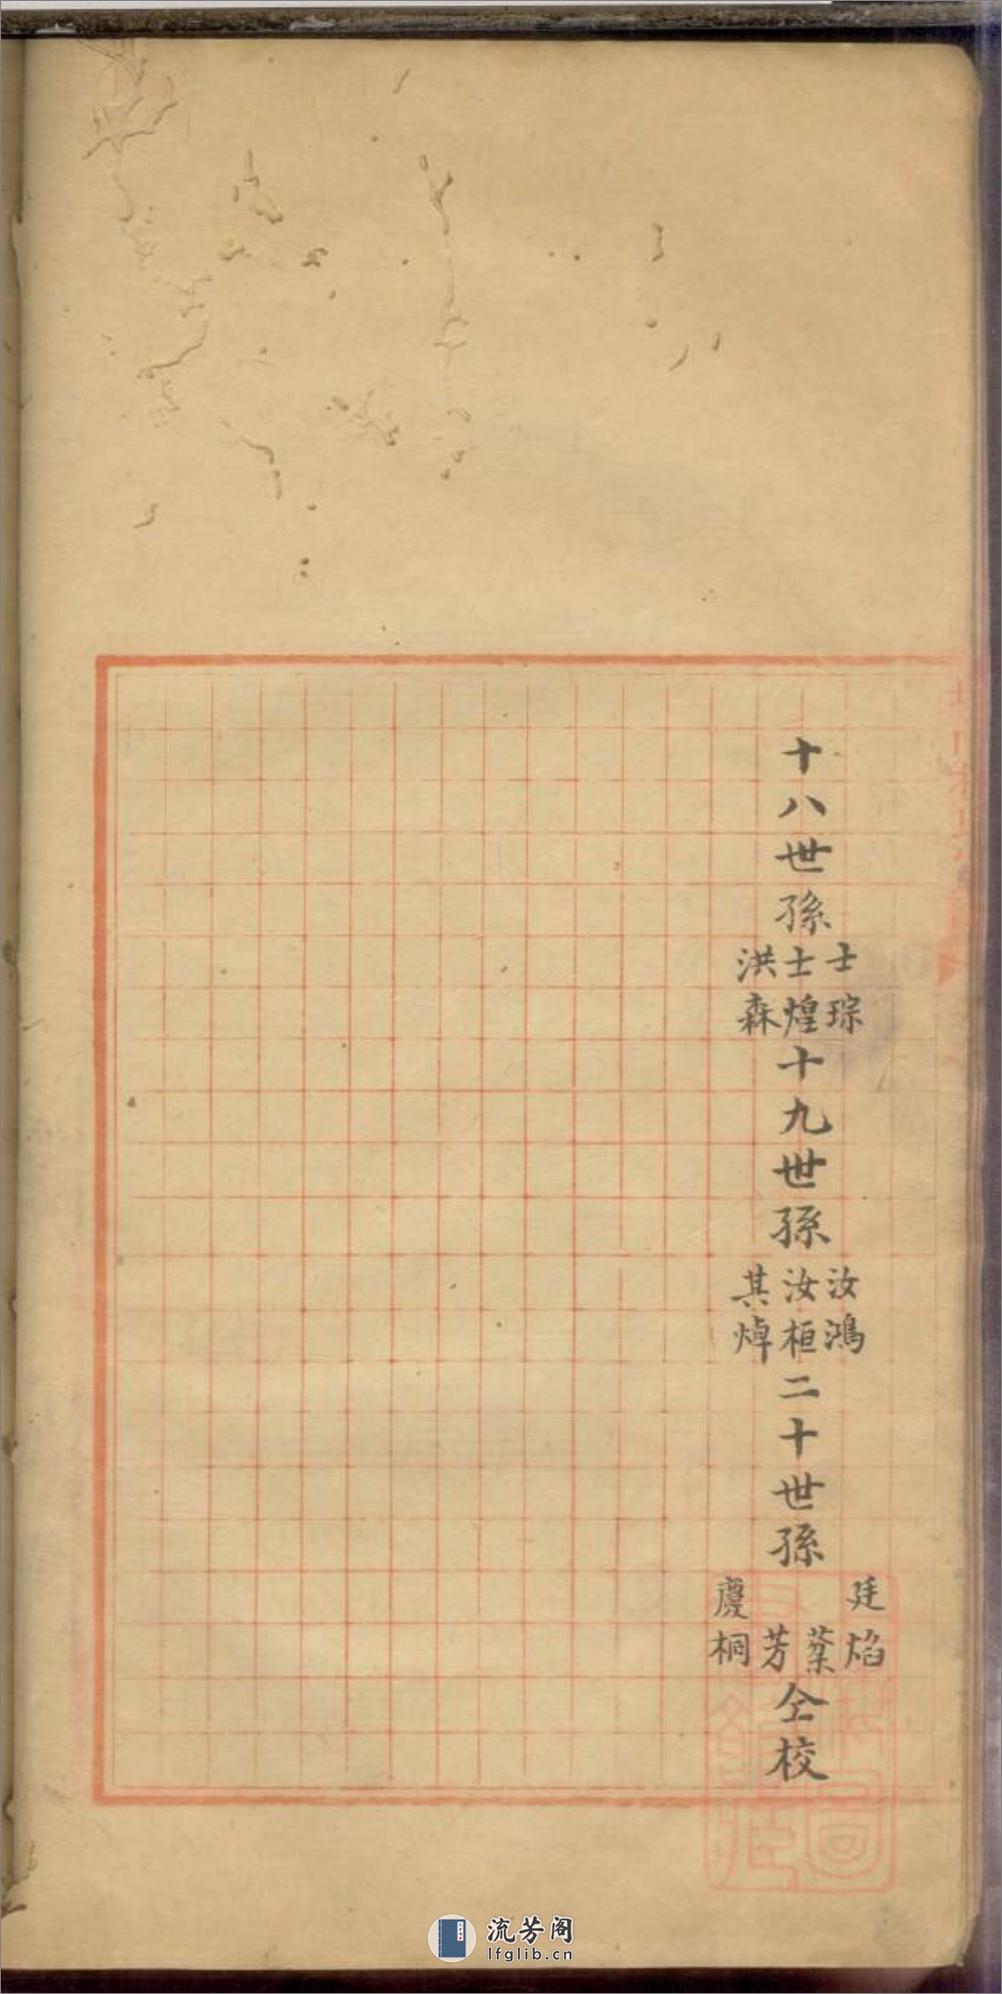 十八世孫
士琮
士煌
洪森
十九世孫
汝鴻
汝桓
其焯
二十世孫
廷焰
棻
芳
慶桐
仝校
流芳阁
lfglib.cn